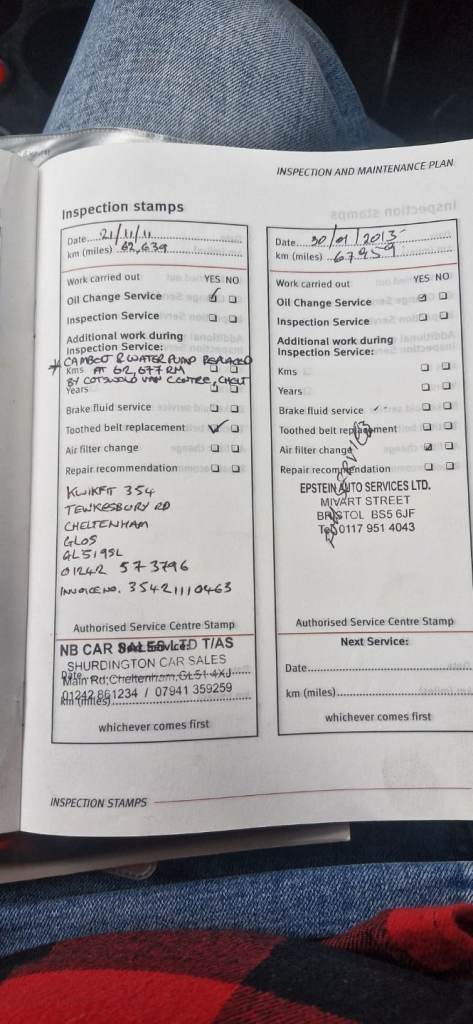 INSPECTION AND MAINTENANCE PLAN
Inspection stamps
Date 21/11/11
km (miles) 62,639
Work carried out YES NO
Oil Change Service
Inspection Service
Additional work during
Inspection Service:
* CAMBELT & WATER PUMP REPLACED
Kms AT 62,677 RM
BY COTSWOLD VAN CENTRE, CHELT
Years
Brake fluid service
Toothed belt replacement
Air filter change
Repair recommendation
KWIKFIT 354
TEWKESBURY RD
CHELTENHAM
GLOS
GL51 9SL
01242 573796
INVOICE NO. 35421110463
Authorised Service Centre Stamp
Next Service:
NB CAR SALES LTD T/AS
SHURDINGTON CAR SALES
Date
Main Rd, Cheltenham, GL51 4XJ
01242 861234 / 07941 359259
km (miles)
whichever comes first
Date 30/01/2013
km (miles) 67959
Work carried out YES NO
Oil Change Service
Inspection Service
Additional work during
Inspection Service:
Kms
Years
Brake fluid service
Toothed belt replacement
Air filter change
Repair recommendation
EPSTEIN AUTO SERVICES LTD.
MIVART STREET
BRISTOL BS5 6JF
Tel 0117 951 4043
Authorised Service Centre Stamp
Next Service:
Date
km (miles)
whichever comes first
INSPECTION STAMPS